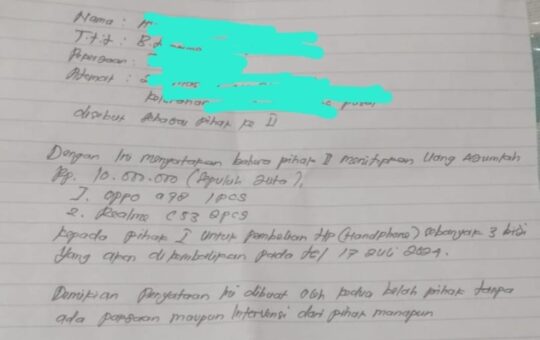 Nama :
T.t.t :
Pekerjaan :
Alamat :
kelurahan
disebut sebagai pihak ke II
Dengan Ini menyatakan bahwa pihak II menitipkan Uang sejumlah
Rp. 10.000.000 (Sepuluh Juta),
1. oppo a78 1pcs
2. Realme C53 2pcs
kepada pihak I untuk pembelian Hp (Handphone) sebanyak 3 biji
Yang akan di kembalikan pada tgl 17 Juli 2024.
Demikian Penyataan Ini dibuat oleh kedua belah pihak tanpa
ada paksaan maupun Intervensi dari pihak manapun